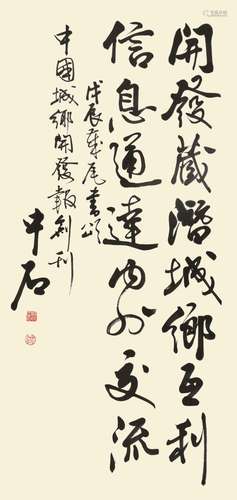 開發藏潛城鄉互利
信息通達內外交流
戊辰歲尾書頌
中國城鄉開發報創刊
中石